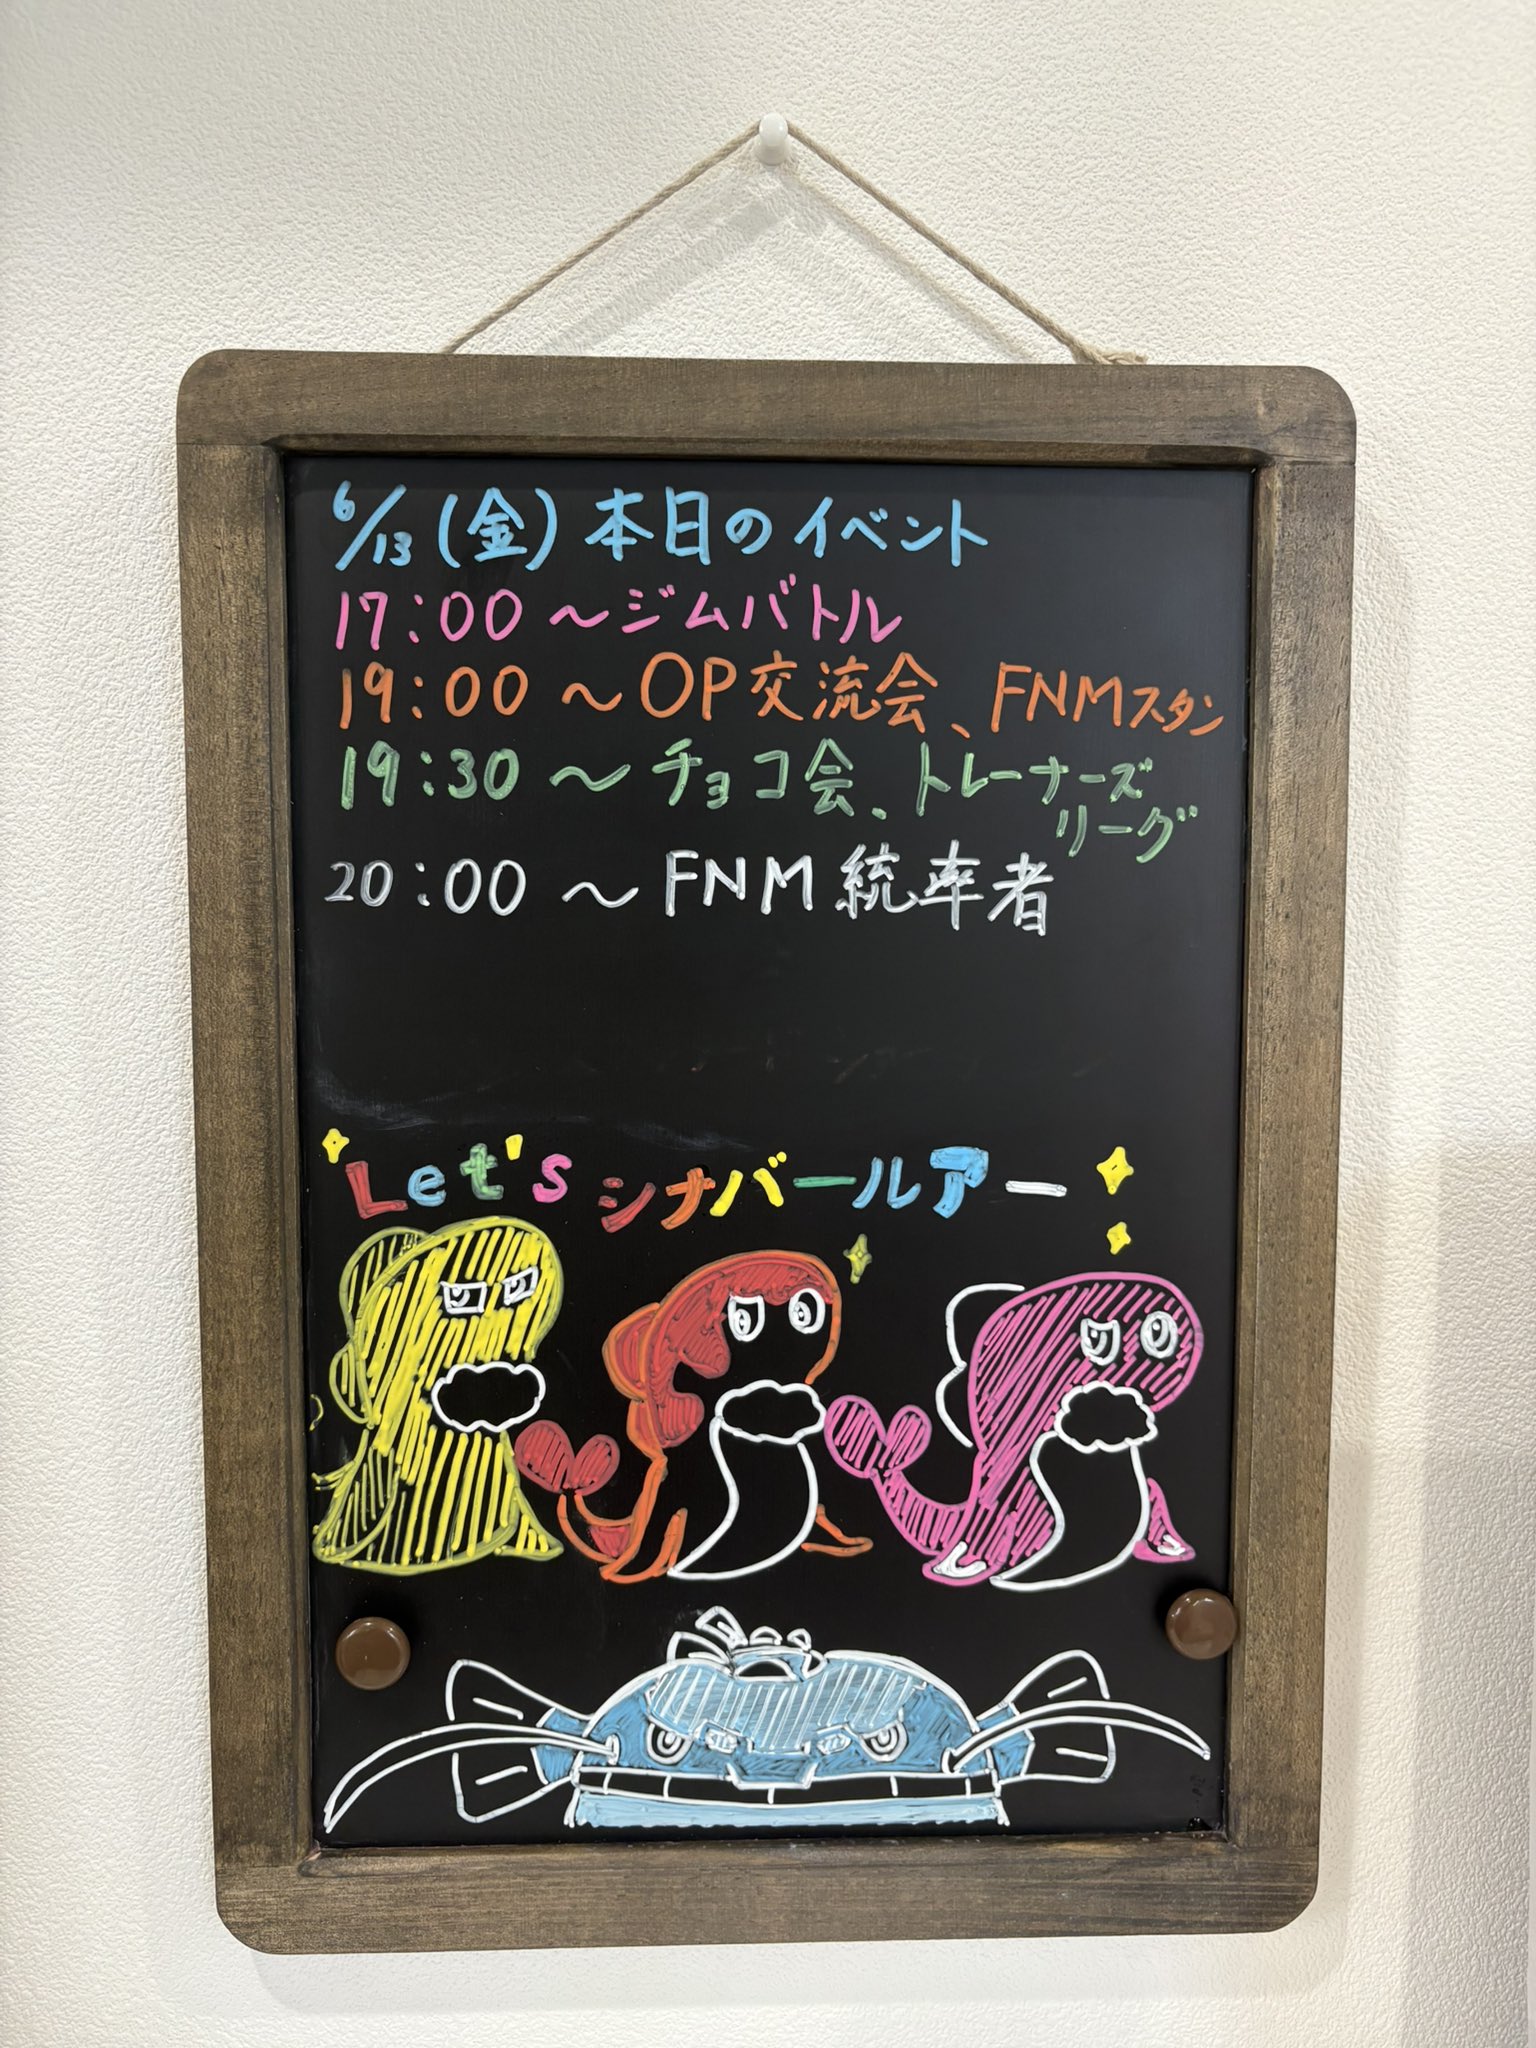 6/13(金)本日のイベント
17:00〜ジムバトル
19:00〜OP交流会、FNMスタン
19:30〜チョコ会、トレーナーズ
リーグ
20:00〜FNM統率者
Let'sシナバールアー